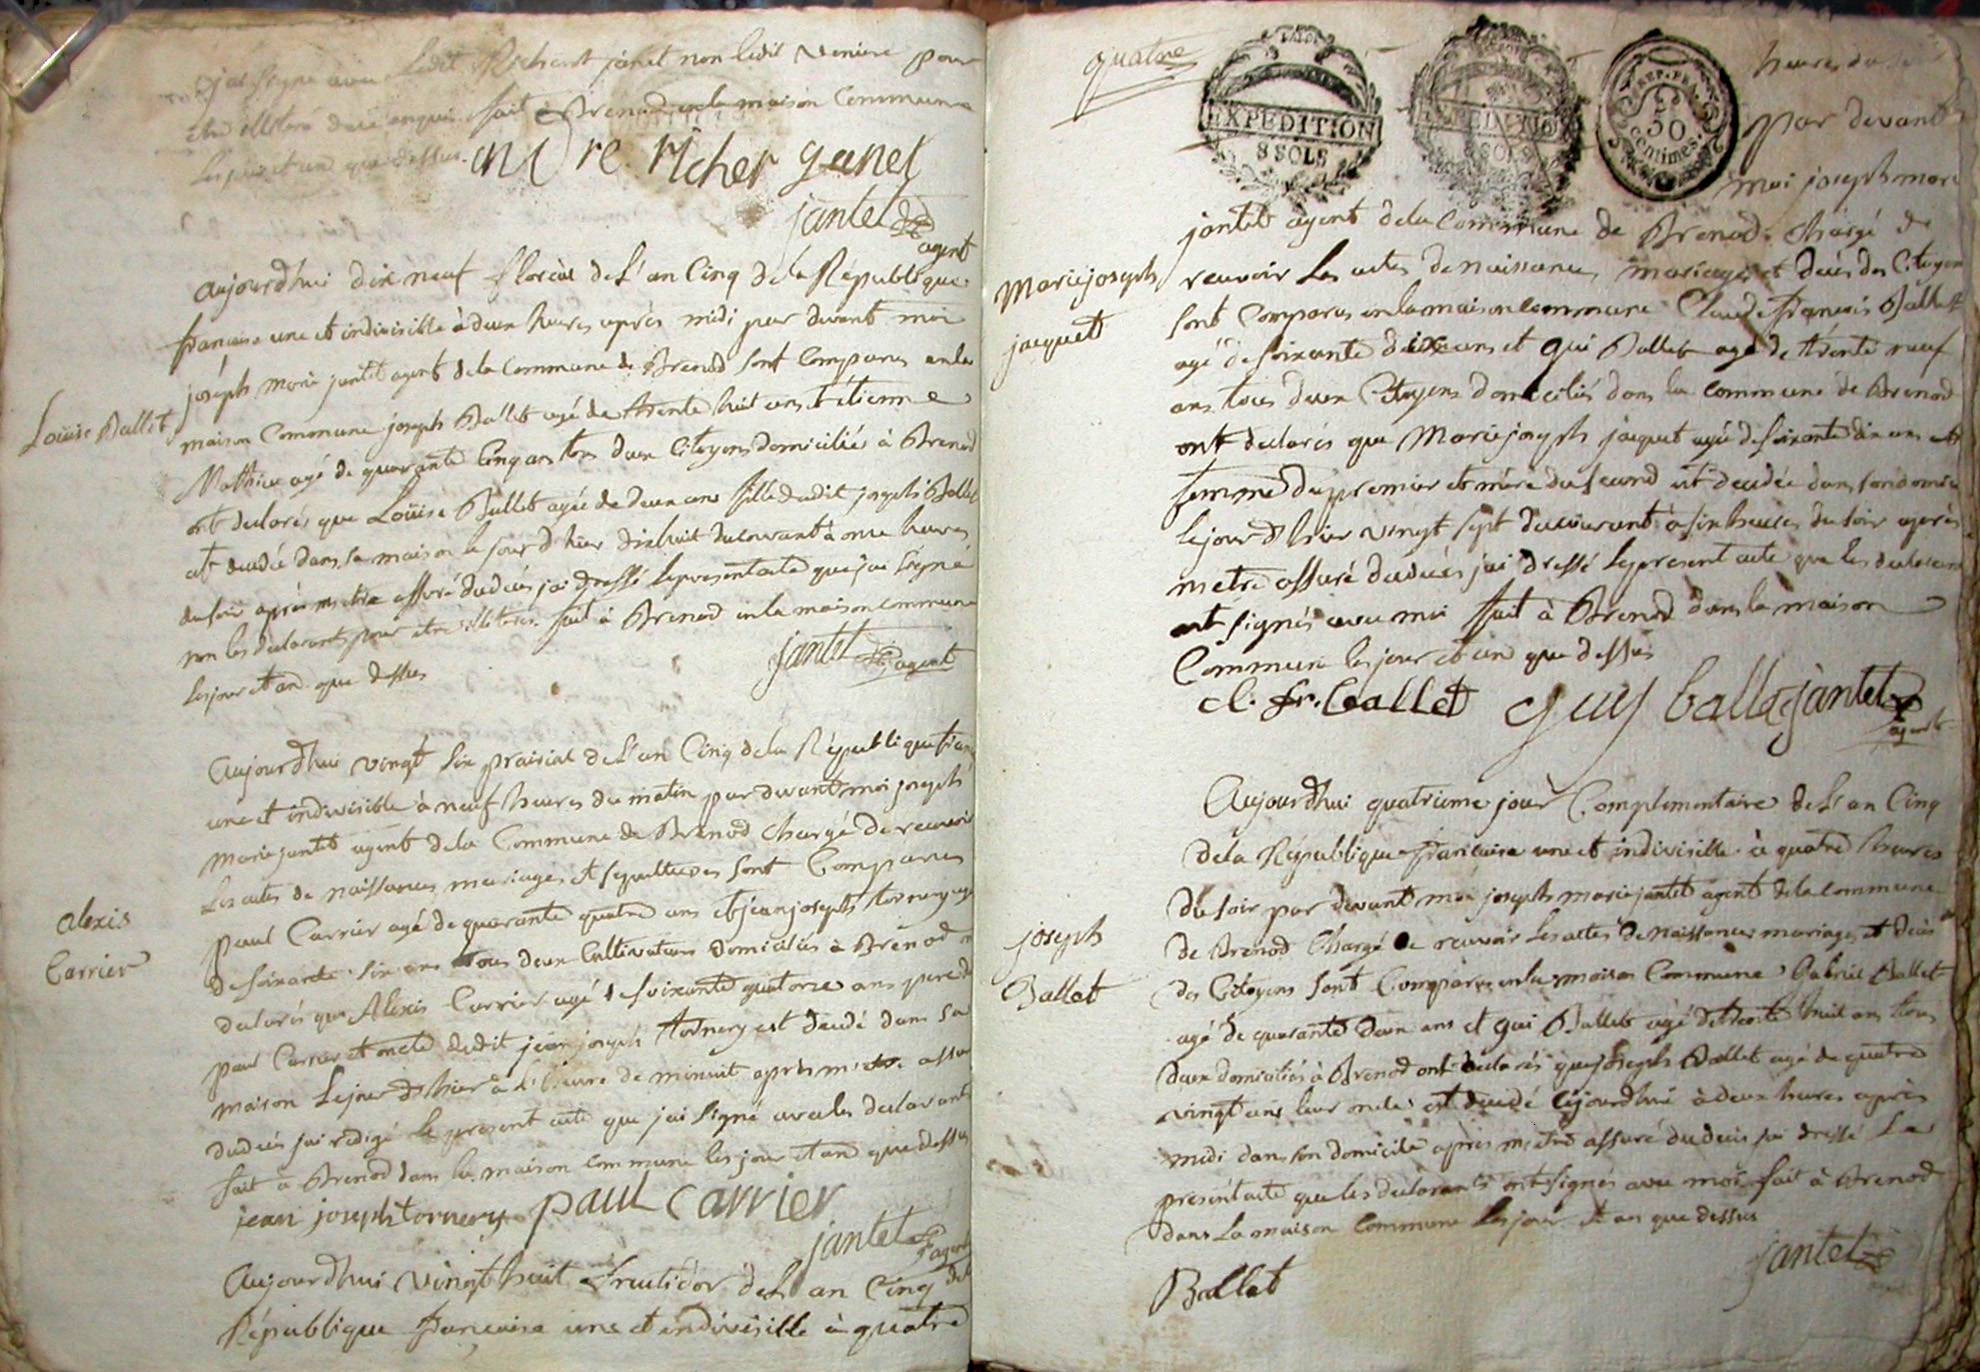 j'ai signé avec ledit Richerot janet non ledit Veniere pour
etre illitéré de ce enquis fait à Brenod en la maison Commune
les jour et an que dessus.
andre richer ganet
jantet
agent
aujourdhui dix neuf floréal de l'an Cinq de la République
francaise une et indivisible à deux heures après midi par devant moi
joseph marie jantet agent de la Commune de Brenod sont Comparus en la
Louise Ballet
maison Commune joseph Ballet agé de trente huit ans et étienne
Mathieu agé de quarante Cinq ans tous deux Citoyens Domiciliés à Brenod
ont declarés que Louise Ballet agée de deux ans fille dudit joseph Ballet
est decedée dans sa maison le jour d'hier dixhuit du courant à onze heures
du soir après m'etre assuré du decès j'ai dressé le present acte que j'ai signé
non les declarants pour etre illiterés. fait à Brenod en la maison commune
les jour et an que dessus
jantet agent
Aujourdhui vingt six prairial de l'an Cinq de la République fran
une et indivisible à neuf heures du matin par devant moi joseph
marie jantet agent de la Commune de Brenod Chargé de recevoir
Les actes de naissances mariages et sepultures sont Comparus
paul Carrier agé de quarante quatre ans et jean joseph tornery agé
alexis
Carrier
de soixante six ans tous deux Cultivateurs domiciliés à Brenod
declarés que Alexis Carrier agé de soixante quatorze ans pere de
paul Carrier et oncle dudit jean joseph tornery est decedé dans sa
maison Le jour d'hier à l'heure de minuit après m'etre assuré
du decès j'ai redigé le present acte que j'ai signé avec les declarants
fait à Brenod dans la maison commune les jour et an que dessus
jean joseph tornery paul carrier
jantet agent
Aujourdhui vingt huit fructidor de l'an Cinq de la
République francaise une et indivisible à quatre
quatre
EXPEDITION
8 SOLS
REP. FRA.
50
centimes.
heures du
par devant
moi joseph marie
jantet agent de la Commune de Brenod. Chargé de
Marie joseph
jacquet
recevoir Les actes de naissances, mariages et decès des Citoyens
sont Comparus en la maison commune Claude françois Ballet
agé de soixante dix ans et Gui Ballet agé de trente neuf
ans tous deux Citoyens domiciliés dans la commune de Brenod
ont declarés que Marie joseph jacquet agée de soixante dix ans
femme du premier et mère du second est decedée dans son domicile
le jour d'hier vingt sept du courant à six heures du soir après
m'etre assuré du decès j'ai dressé le present acte que les declarans
ont signés avec moi fait à Brenod dans la maison
Commune les jour et an que dessus
cl. fr. Ballet Guy balla jantet
agent
Aujourdhui quatrieme jour Complementaire de l'an Cinq
de la République francaise une et indivisible à quatre heures
du soir par devant moi joseph marie jantet agent de la commune
joseph
Ballet
de Brenod Chargé de recevoir Les actes de naissances mariages et decès
des Citoyens sont Comparus en la maison Commune Gabriel Ballet
agé de quarante deux ans et Gui Ballet agé de trente huit ans tous
deux domiciliés à Brenod ont declarés que joseph Ballet agé de quatre
vingt ans leur oncle est decedé cejourdhui à deux heures après
midi dans son domicile après m'etre assuré du decès j'ai dressé Le
present acte que les declarants ont signés avec moi fait à Brenod
dans La maison Commune les jour et an que dessus
Ballet
jantet